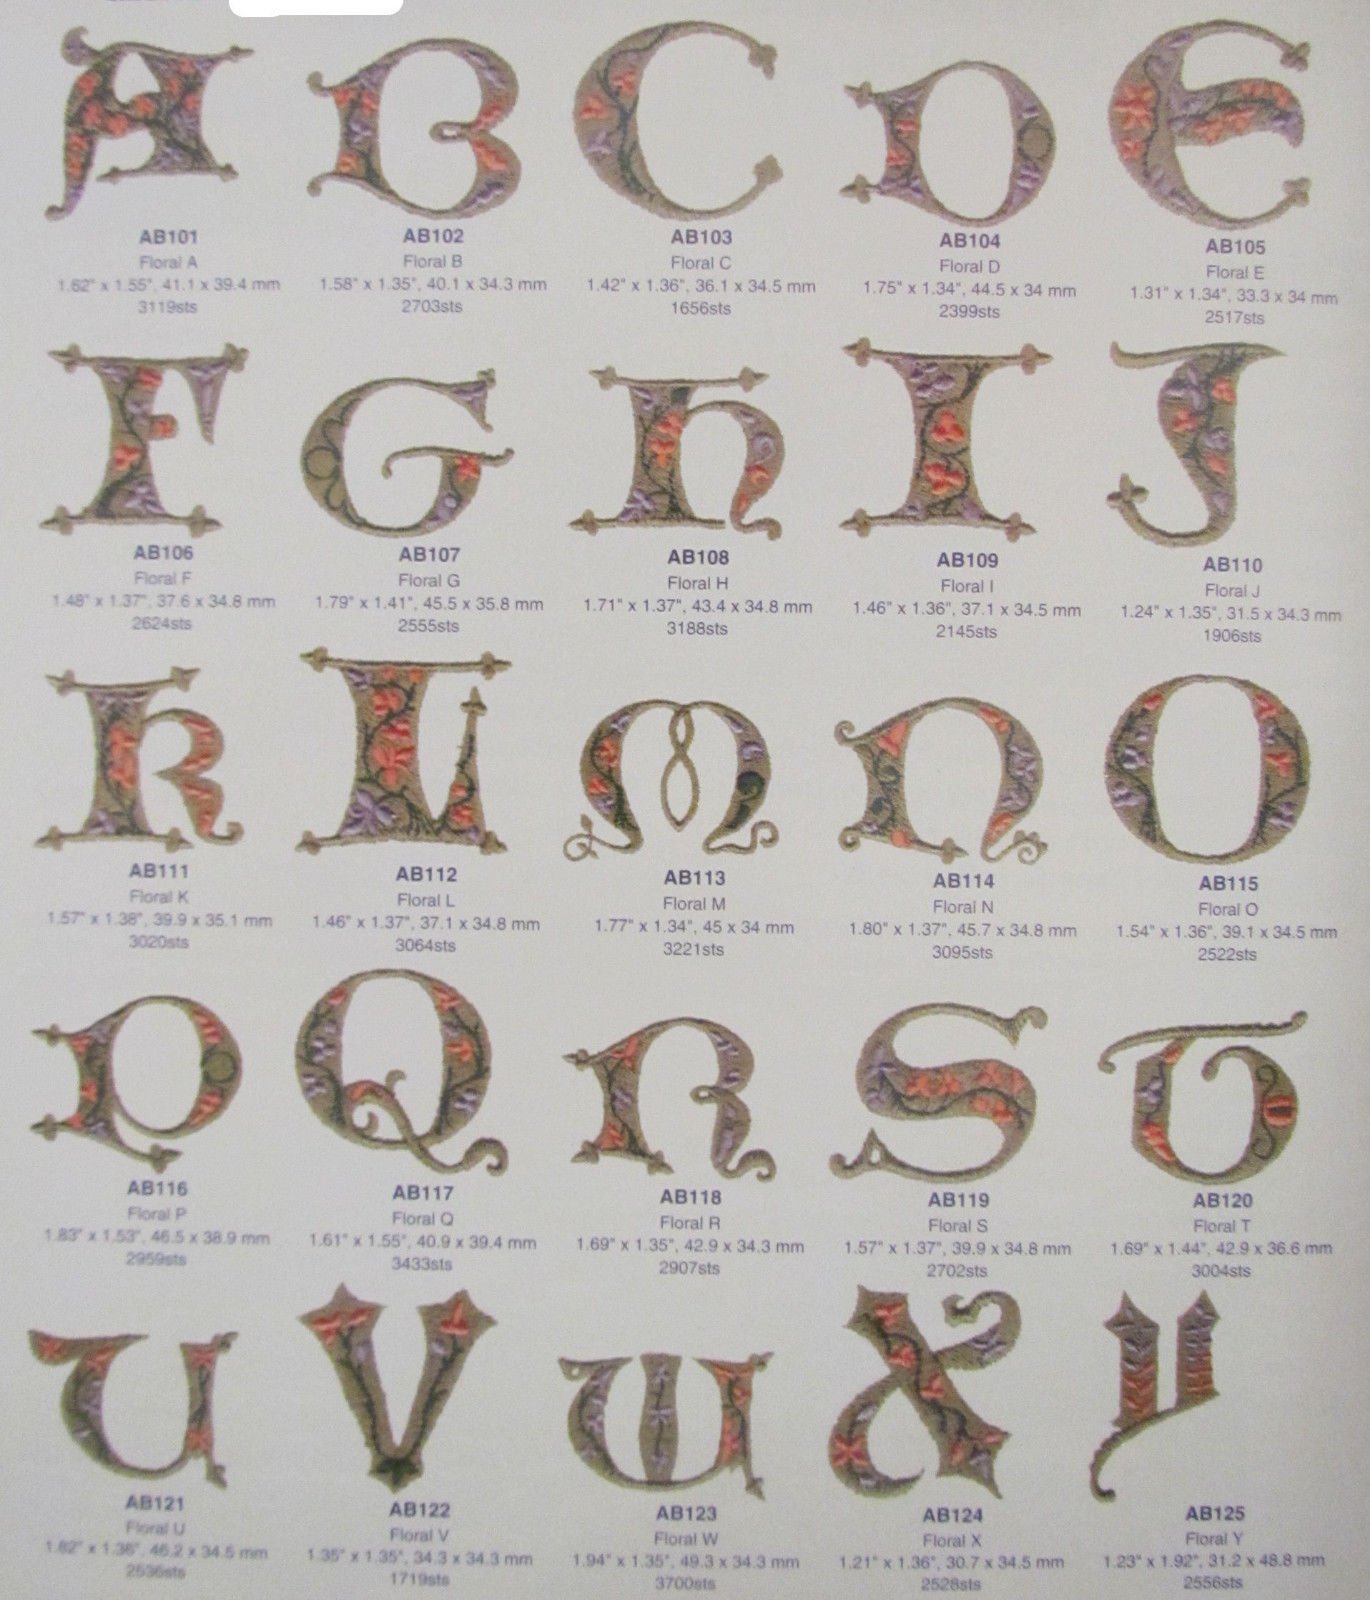 A
AB101
Floral A
1.62" x 1.55", 41.1 x 39.4 mm
3119sts
B
AB102
Floral B
1.58" x 1.35", 40.1 x 34.3 mm
2703sts
C
AB103
Floral C
1.42" x 1.36", 36.1 x 34.5 mm
1656sts
D
AB104
Floral D
1.75" x 1.34", 44.5 x 34 mm
2399sts
E
AB105
Floral E
1.31" x 1.34", 33.3 x 34 mm
2517sts
F
AB106
Floral F
1.48" x 1.37", 37.6 x 34.8 mm
2624sts
G
AB107
Floral G
1.79" x 1.41", 45.5 x 35.8 mm
2555sts
H
AB108
Floral H
1.71" x 1.37", 43.4 x 34.8 mm
3188sts
I
AB109
Floral I
1.46" x 1.36", 37.1 x 34.5 mm
2145sts
J
AB110
Floral J
1.24" x 1.35", 31.5 x 34.3 mm
1906sts
K
AB111
Floral K
1.57" x 1.38", 39.9 x 35.1 mm
3020sts
L
AB112
Floral L
1.46" x 1.37", 37.1 x 34.8 mm
3064sts
M
AB113
Floral M
1.77" x 1.34", 45 x 34 mm
3221sts
N
AB114
Floral N
1.80" x 1.37", 45.7 x 34.8 mm
3095sts
O
AB115
Floral O
1.54" x 1.36", 39.1 x 34.5 mm
2522sts
P
AB116
Floral P
1.83" x 1.53", 46.5 x 38.9 mm
2959sts
Q
AB117
Floral Q
1.61" x 1.55", 40.9 x 39.4 mm
3433sts
R
AB118
Floral R
1.69" x 1.35", 42.9 x 34.3 mm
2907sts
S
AB119
Floral S
1.57" x 1.37", 39.9 x 34.8 mm
2702sts
T
AB120
Floral T
1.69" x 1.44", 42.9 x 36.6 mm
3004sts
U
AB121
Floral U
1.82" x 1.36", 46.2 x 34.5 mm
2536sts
V
AB122
Floral V
1.35" x 1.35", 34.3 x 34.3 mm
1719sts
W
AB123
Floral W
1.94" x 1.35", 49.3 x 34.3 mm
3700sts
X
AB124
Floral X
1.21" x 1.36", 30.7 x 34.5 mm
2528sts
Y
AB125
Floral Y
1.23" x 1.92", 31.2 x 48.8 mm
2556sts